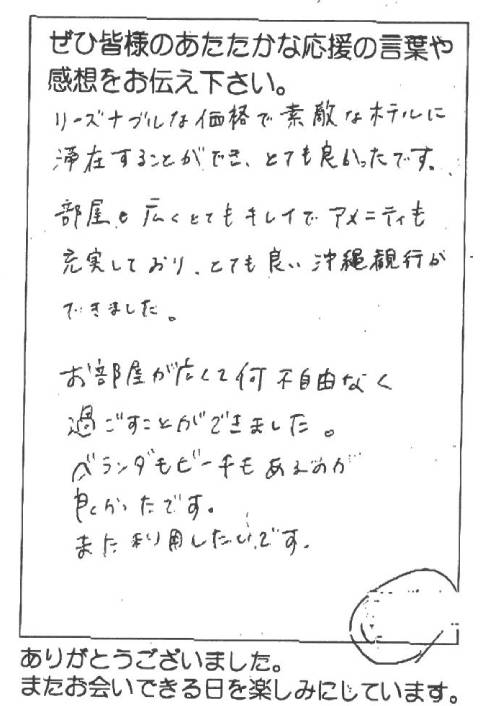 ぜひ皆様のあたたかな応援の言葉や
感想をお伝え下さい。
リーズナブルな価格で素敵なホテルに
滞在することができ、とても良かったです。
部屋も広くとてもキレイでアメニティも
充実しており、とても良い沖縄観行が
できました。
お部屋が広くて何不自由なく
過ごすことができました。
ベランダもビーチもあるのが
良かったです。
また利用したいです。
ありがとうございました。
またお会いできる日を楽しみにしています。